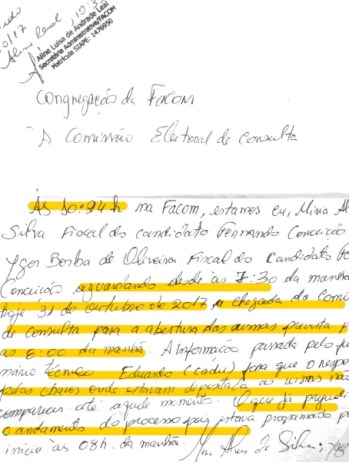 Aline Luisa de Andrade Leal
Secretária Administrativa/FACOM
Matrícula SIAPE: 1476950
Congregação da Facom
A Comissão Eleitoral de Consulta
Às 10:24h na Facom, estamos eu, Mina A
Silva Fiscal do candidato Fernando Conceição
Ygor Borba de Oliveira Fiscal do Candidato
Conceição aguardando desde às 7:30 da manhã
hoje 31 de outubro de 2017 a chegada da Comi
de consulta para a abertura das urnas prevista
às 8:00 da manhã. A informação passada pelo
nário Técnico Eduardo (Cadu) foi que o respon
(chave) onde estavam depositada as urnas não
compareceu até aquele momento. O que já prejudi
o andamento do processo pois estava programado
início às 08h. da manhã.